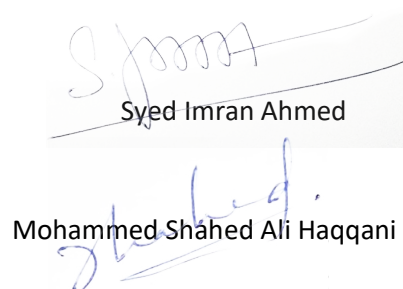 Syed Imran Ahmed
Shahed.
Mohammed Shahed Ali Haqqani